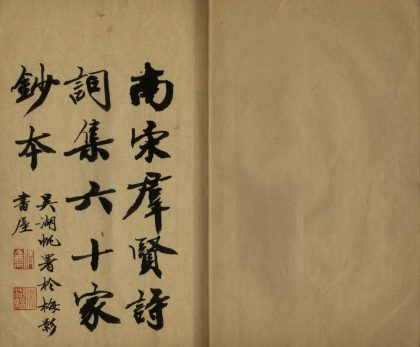 南宋羣賢詩
詞集六十家
鈔本
吳湖帆署於梅影
書屋